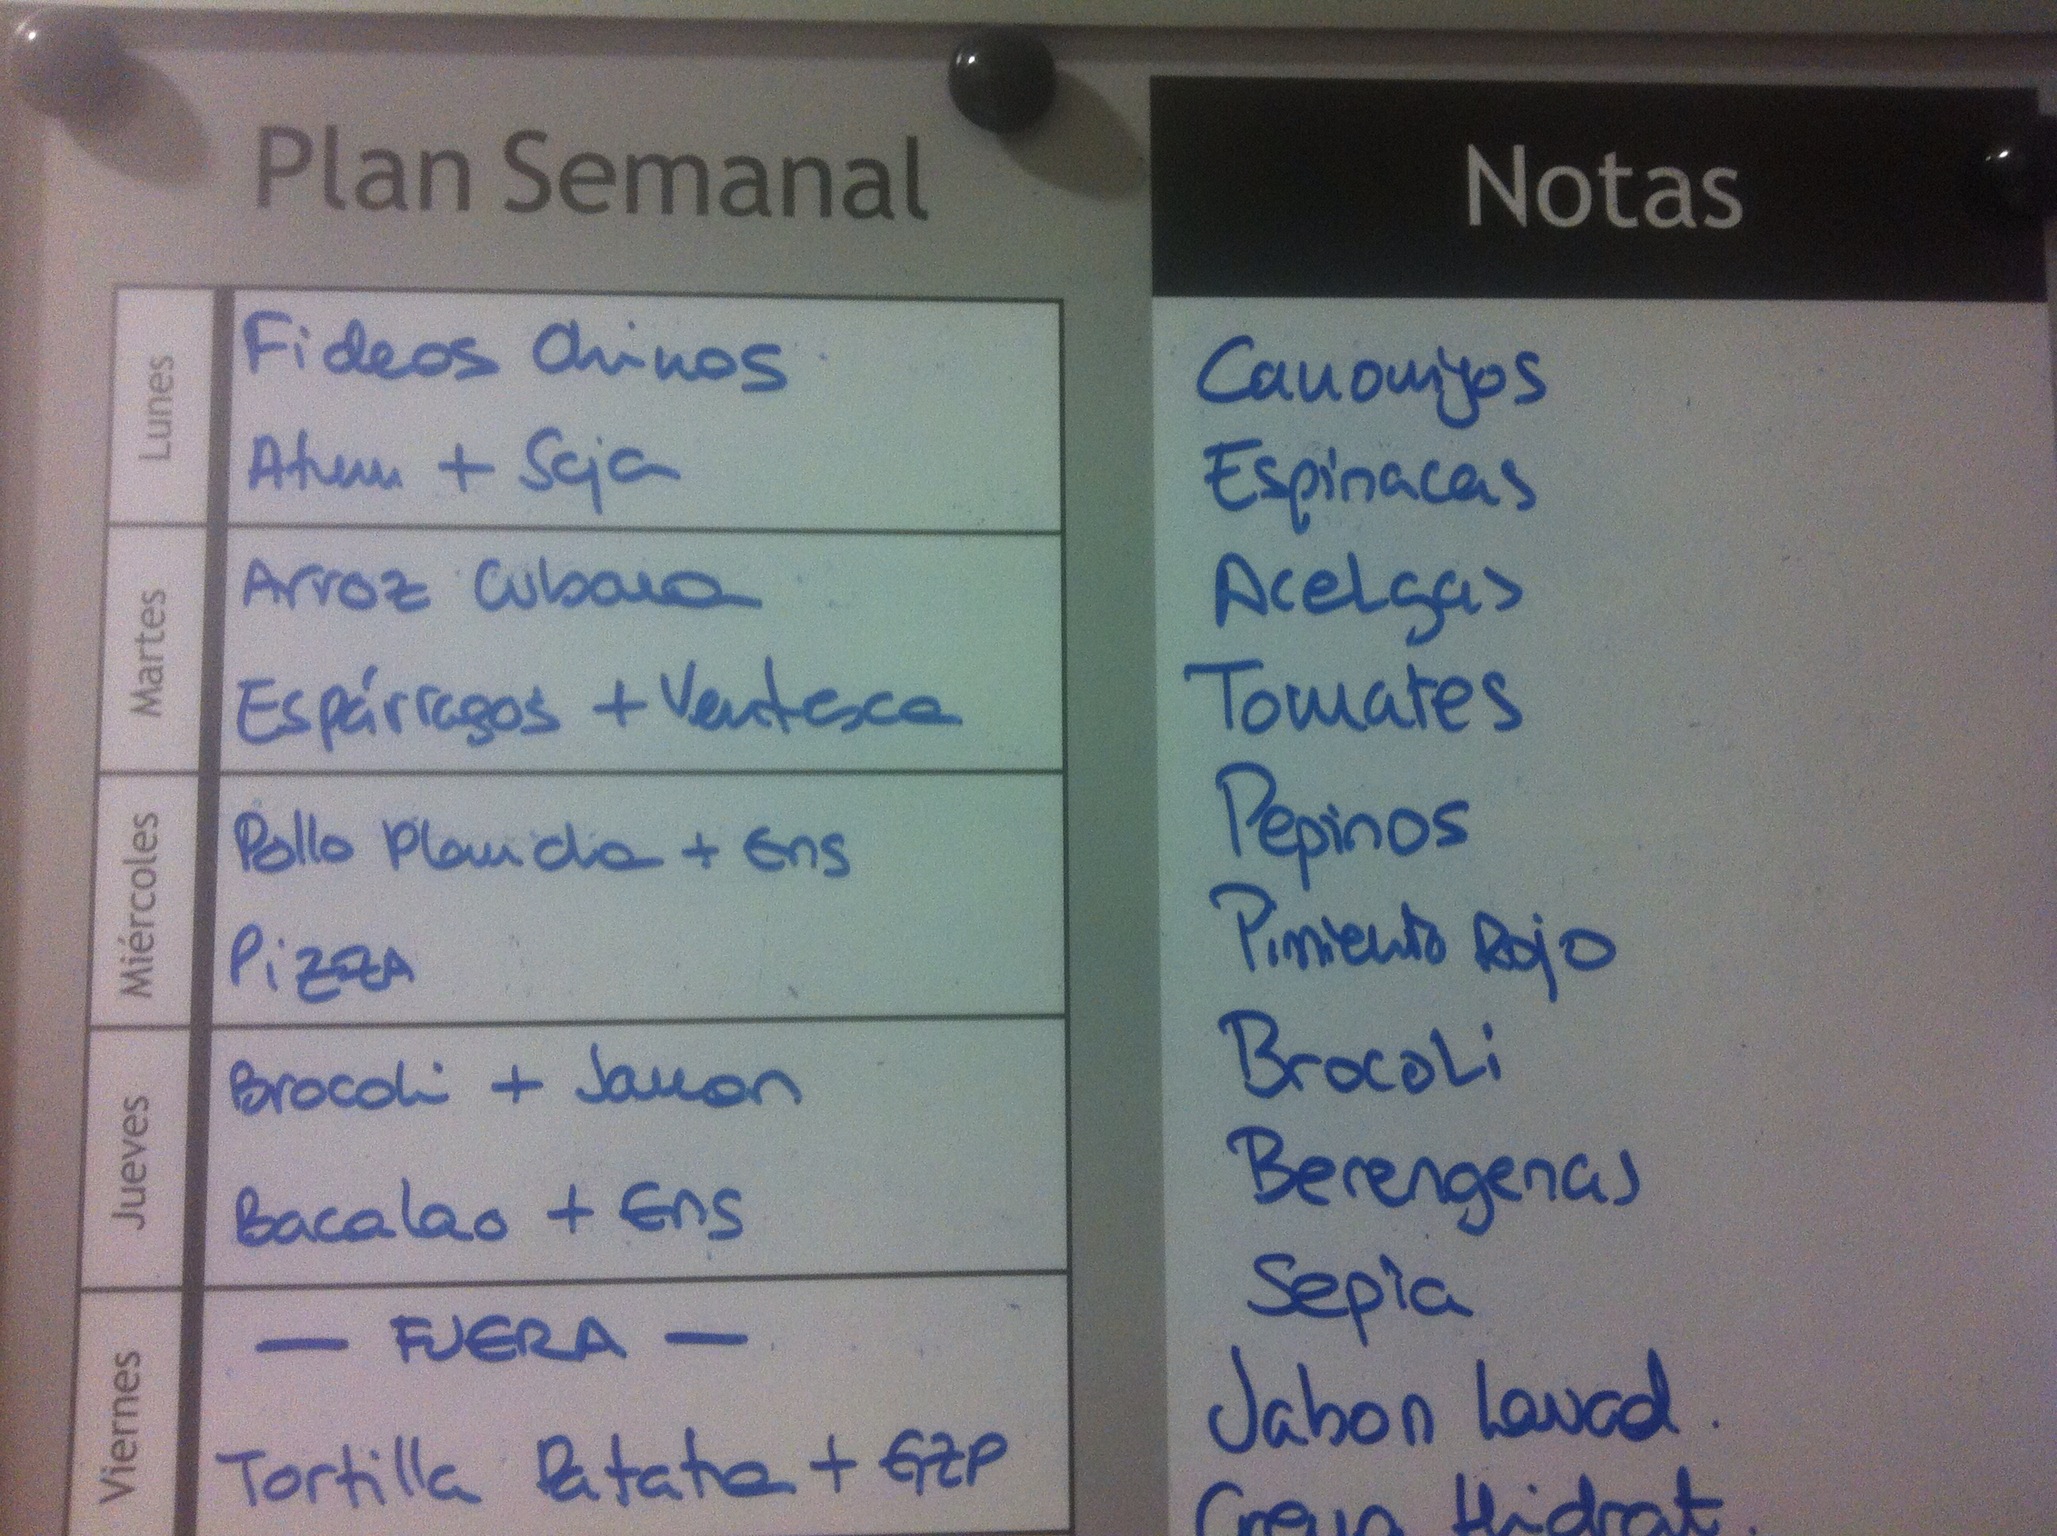 Plan Semanal
Lunes
Fideos Chinos
Atun + Soja
Martes
Arroz Cubana
Espárragos + Ventesca
Miércoles
Pollo Plancha + Ens
Pizza
Jueves
Brocoli + Jamon
Bacalao + Ens
Viernes
— FUERA —
Tortilla Patata + GZP
Notas
Canonijos
Espinacas
Acelgas
Tomates
Pepinos
Pimiento Rojo
Brocoli
Berengenas
Sepia
Jabon Lavad.
Crema Hidrat.